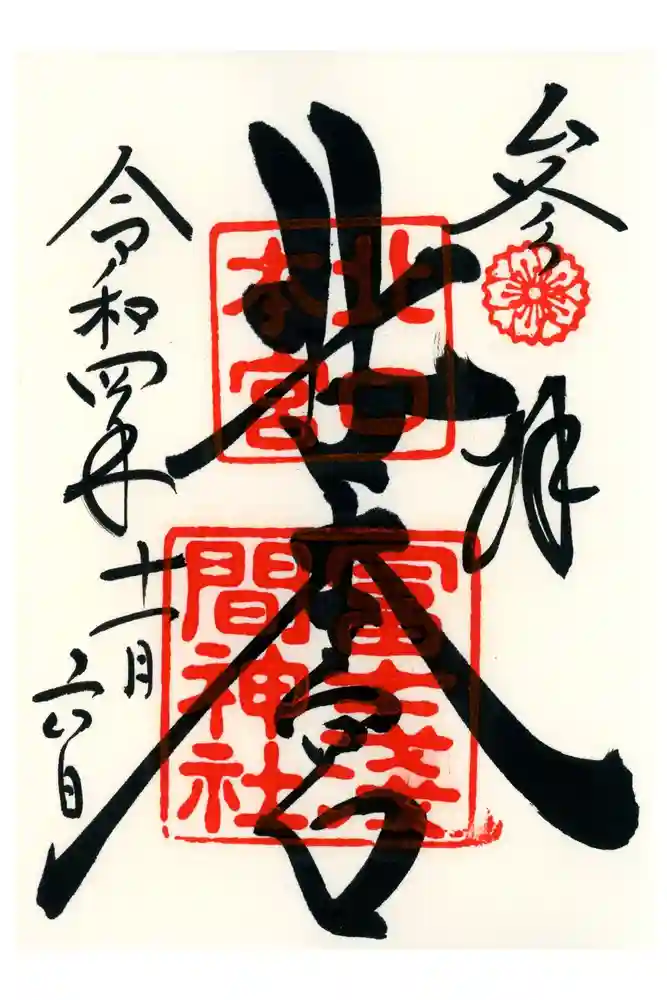 参拝
北口本宮
北口
本宮
富士淺
間神社
令和四年
十一月
六日